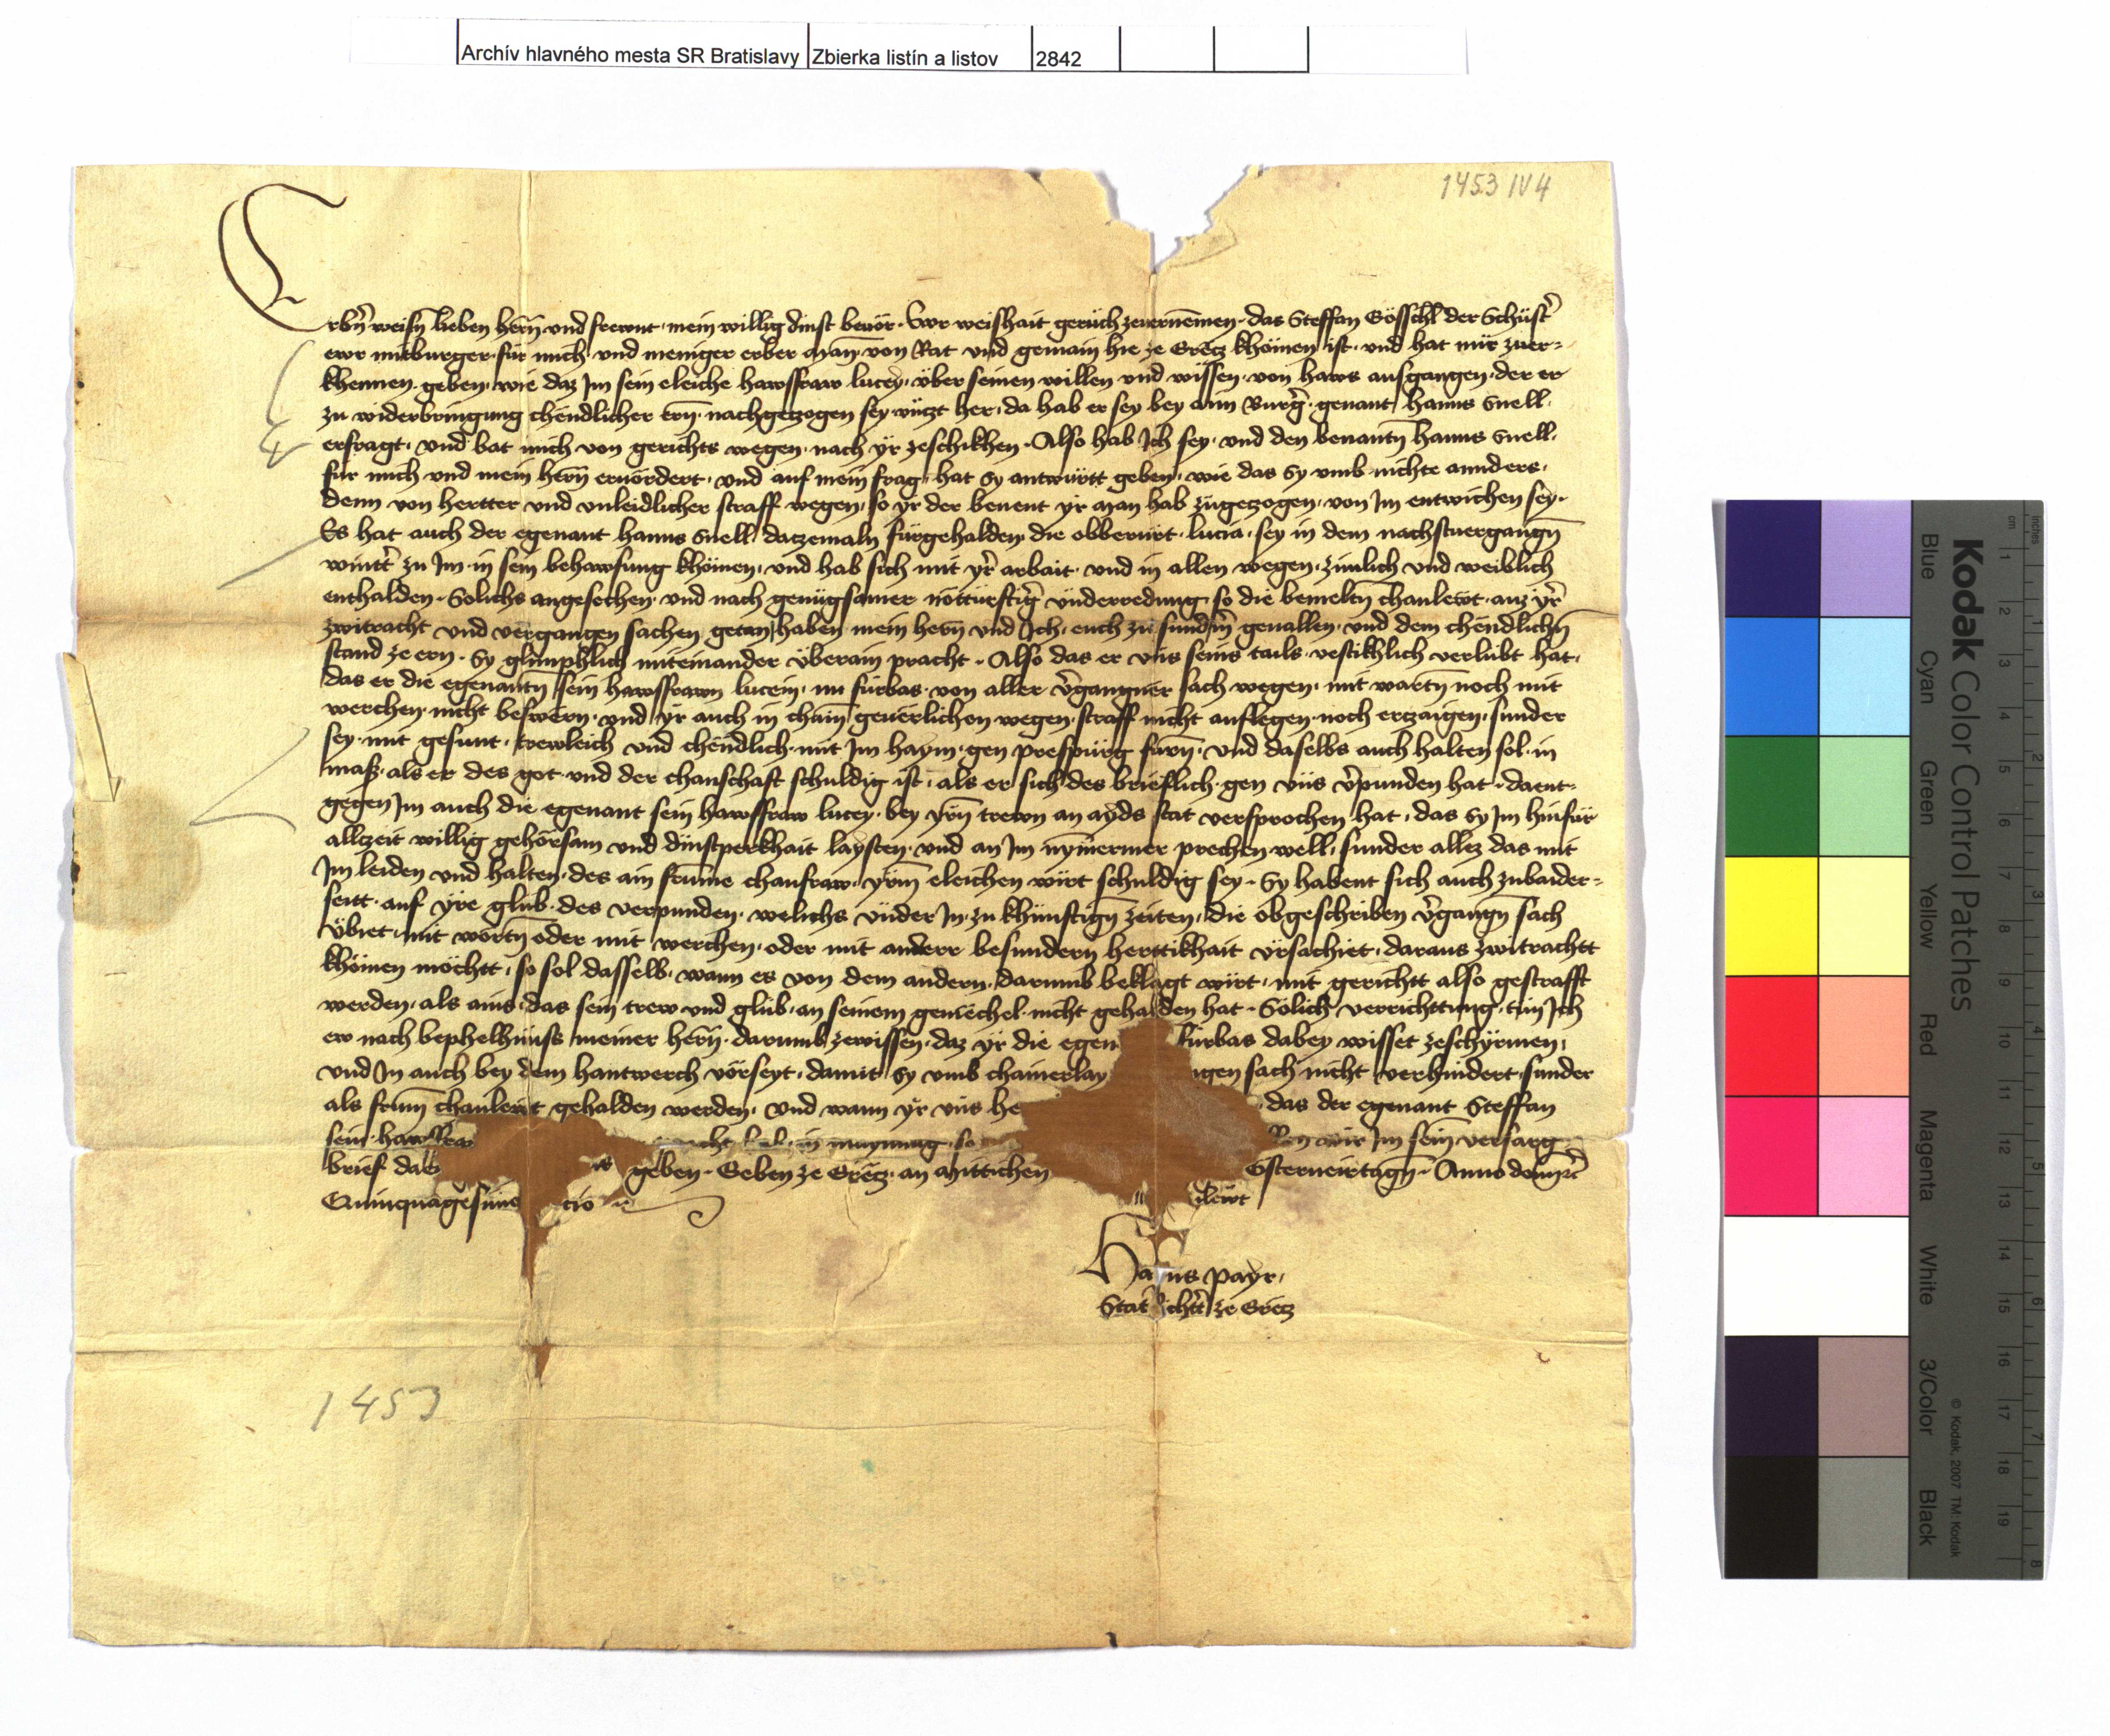 Archív hlavného mesta SR Bratislavy Zbierka listín a listov 2842
1453 IV 4
Erbn̄ weisn̄ lieben hern̄ und frewnt, mein willig dinst beuor. Ewr weishait geruch zeuernemen, das Steffan Gösschl der Schust̄
ewr mitburger, für mich und meniger erber man von Rat und gemain hie ze Gretz khömen ist, und hat mir zuer-
khennen geben, wie daz Im sein eleiche hawsfraw lucey, über seinen willen und wissen, von haws ausgangen, der er
zu widerbringung chendlicher ern̄ nachgetzogen sey uncz her, da hab er sey bey ainn Burḡ genant hanns Snell
erfragt, und bat mich von gerichts wegen, nach yr zeschikhen. Also hab Ich sey, und den benantn̄ hanns Snell,
für mich und mein hern̄ eruordert, und auf mein frag, hat sy antwurtt geben, wie das sy umb nichte annders,
denn von hertter und unleidlicher straff wegen, so yr der benent yr man hab zugetzogen, von Im entwichen sey.
Es hat auch der egenant hanns Snell datzemaln furgehalden, die obberurt lucia, sey in dem nachstuergangn̄
wintt̄ zu Im in sein behawsung khömen, und hab sich mit yr̄ arbait und in allen wegen, zimlich und weiblich
enthalden. Solichs angesechen, und nach genugsamer notturftiḡ underredung, so die bemeltn̄ chanlewt, auz yr̄
zwitracht und vergangen sachen getan haben, mein hern̄ und Ich, euch zu sundn̄ geuallen, und dem chendlichn̄
stand ze ern, Sy glimphlich miteinander überain pracht. Also das er uns seins tails, vestikhlich verlubt hat,
das er die egenantn̄ sein hawsfrawn lucein, nu furbas, von aller v̄gangner sach wegen, mit wartn̄ noch mit
werchen, nicht beswern, und yr auch in chain geuerlichen wegen, straff nicht auflegen noch ertzaigen, sunder
sey mit gesunt, trewleich und chendlich, mit Im haym, gen prespurg furn̄, und daselbs auch halten sol, in
mass, als er des got und der chanschaft schuldig ist, als er sich des brieflich gen uns v̄punden hat. daent-
gegen Im auch die egenant sein hawsfraw lucey, bey yrn̄ trewn an ayds stat versprochen hat, das sy Im hinfür
allzeit willig gehorsam und dinstperkhait laysten, und an Im nymermer prechen well, sunder allez das mit
Im leiden und halten, des ain frume chanfraw, yrm̄ eleichen wirt schuldig sey. Sy habent sich auch zubaider-
seitt auf yre glub des verpunden, welichs under In zu khunftign̄ zeiten, die obgeschriben v̄gangn̄ sach
übiet, mit wortn̄ oder mit werchen, oder mit anderr besundern herttikhait ursachiet, daraus zwitrachtt
khömen möchtt, so sol dasselb, wann es von dem andern, darumb beklagt wirt, mit gerichtt also gestrafft
werden, als ains, das sein trew und glub, an seinem gemechel nicht gehalden hat. Solich verrichttung, tun Ich
ew nach bephelhnuss meiner hern̄, darumb zewissen, daz yr die egen furbas dabey wisset zeschyrmen,
und In auch bey dem hantwerch vorseyt, damit sy umb chainerlay ngen sach nicht verhindert, sunder
als frum̄ chanlewt gehalden werden, und wann yr uns he das der egenant Steffan
sein hawsfraw cht hab, in maynung, so wir Im sein versarg
brief da geben. Geben ze Gretz, an Mittichen Osterueirtagn̄. Anno domi etc̄
Quinquagesimo tio
ilewt
Hanns payr,
Statrichtt̄ ze Gretz
1453
Kodak Color Control Patches
Blue Cyan Green Yellow Red Magenta White 3/Color Black
© Kodak, 2007 TM: Kodak
inches 1 2 3 4 5 6 7 8
cm 1 2 3 4 5 6 7 8 9 10 11 12 13 14 15 16 17 18 19